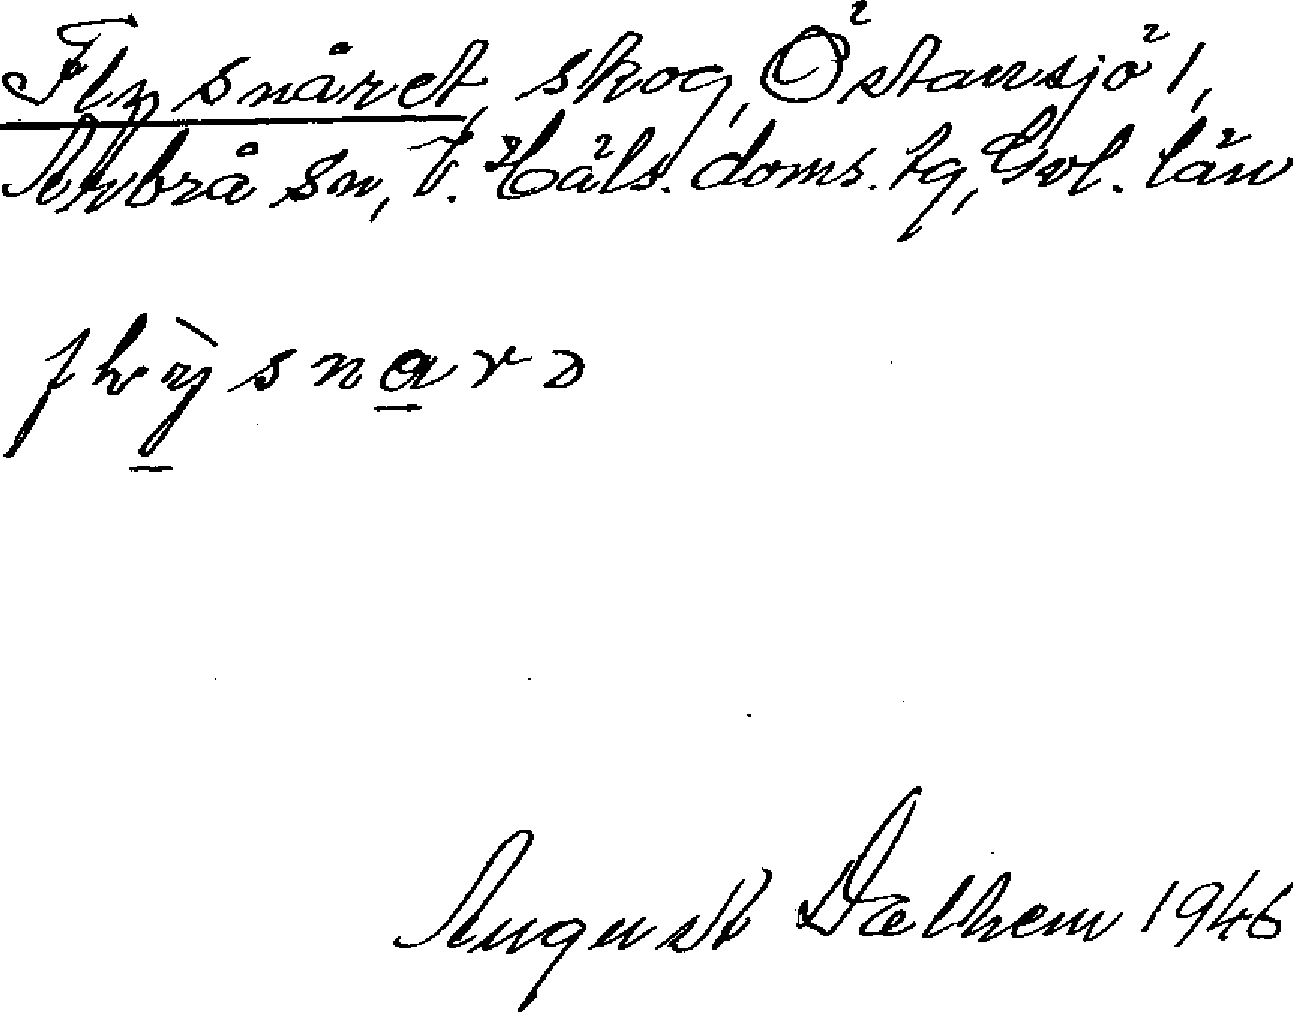 Flysnåret, skog, Östansjö 1,
Arbrå sn, V. Häls. doms. tg, Gvl. län
August Dalhem 1946